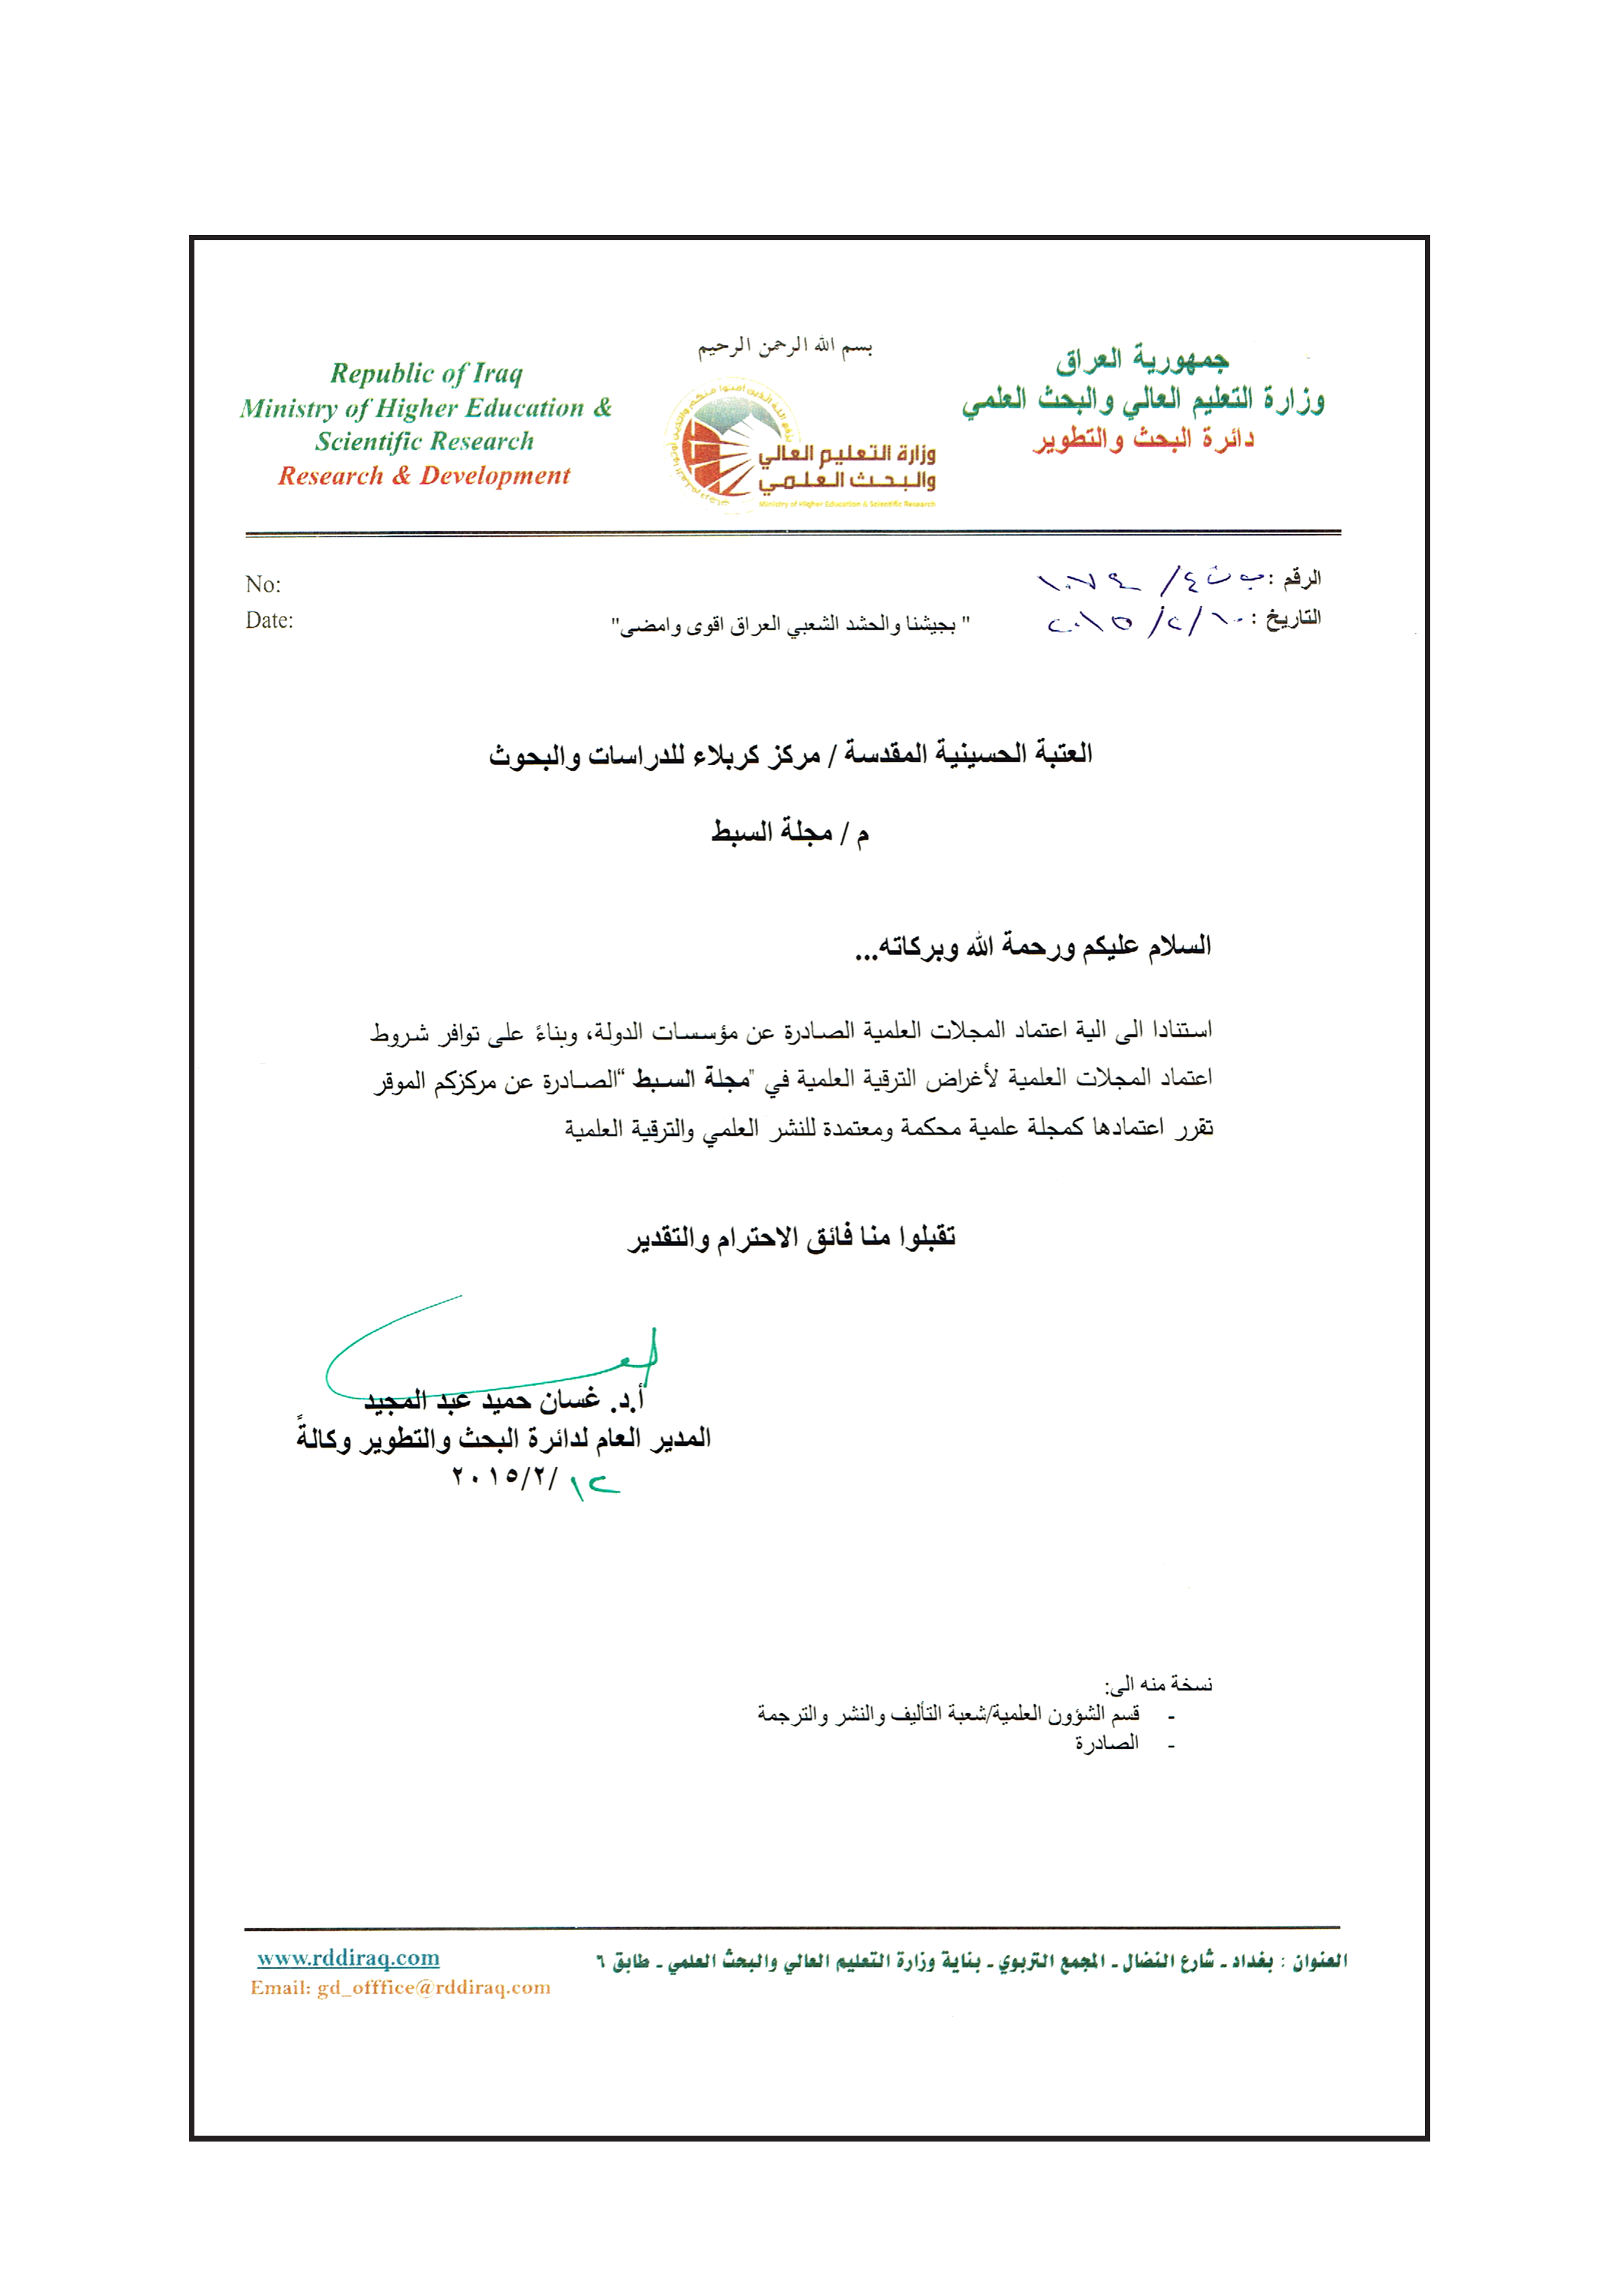 بسم الله الرحمن الرحيم
جمهورية العراق
وزارة التعليم العالي والبحث العلمي
دائرة البحث والتطوير
Republic of Iraq
Ministry of Higher Education &
Scientific Research
Research & Development
وزارة التعليم العالي
والبحث العلمي
Ministry of Higher Education & Scientific Research
الرقم : ب ت ٤/
No:
التاريخ : ٢٠١٥/٢/١٠
Date:
" بجيشنا والحشد الشعبي العراق اقوى وامضى"
العتبة الحسينية المقدسة / مركز كربلاء للدراسات والبحوث
م / مجلة السبط
السلام عليكم ورحمة الله وبركاته...
استنادا الى الية اعتماد المجلات العلمية الصادرة عن مؤسسات الدولة، وبناءً على توافر شروط
اعتماد المجلات العلمية لأغراض الترقية العلمية في "مجلة السبط “الصادرة عن مركزكم الموقر
تقرر اعتمادها كمجلة علمية محكمة ومعتمدة للنشر العلمي والترقية العلمية
تقبلوا منا فائق الاحترام والتقدير
أ.د. غسان حميد عبد المجيد
المدير العام لدائرة البحث والتطوير وكالةً
١٢/ ٢٠١٥/٢
نسخة منه الى:
- قسم الشؤون العلمية/شعبة التأليف والنشر والترجمة
- الصادرة
العنوان : بغداد ـ شارع النضال ـ المجمع التربوي ـ بناية وزارة التعليم العالي والبحث العلمي ـ طابق ٦
www.rddiraq.com
Email: gd_offfice@rddiraq.com